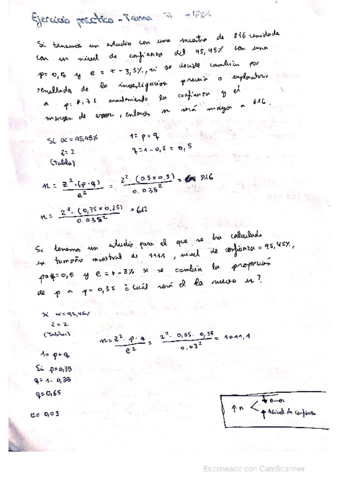 Ejercicio práctico - Tema
Si tenemos un estudio con una muestra de 816 calculada
con un nivel de confianza del 95,45% con una
p=0,5 y e=+-3,5%, si se decide cambiar por
resultados de la investigación previa o exploratoria
a p=0.75 manteniendo la confianza y el
margen de error, entonces n será mayor a 816.
Si α=95,45% 1=p+q
z=2 q=1-0,5=0,5
(Tabla)
n = z²·(p·q) / e² = 2²·(0.5×0,5) / 0.035² = 816
n = 2²·(0,75×0,25) / 0.035² = 612
Si tenemos un estudio para el que se ha calculado
un tamaño muestral de 1111, nivel de confianza=95,45%,
p=q=0,5 y e=+-3% si se cambia la proporción
de p a q=0,35 ¿Cuál será el la nueva n?
α=95,45%
z=2
(Tabla)
n = z²·p·q / e² = 2²·0,65·0,35 / 0.03² = 1011,1
1=p+q
Si p=0,35
q=1-0,35
q=0,65
e=0,03
↑n
↑Nivel de confianza
Escaneado con CamScanner